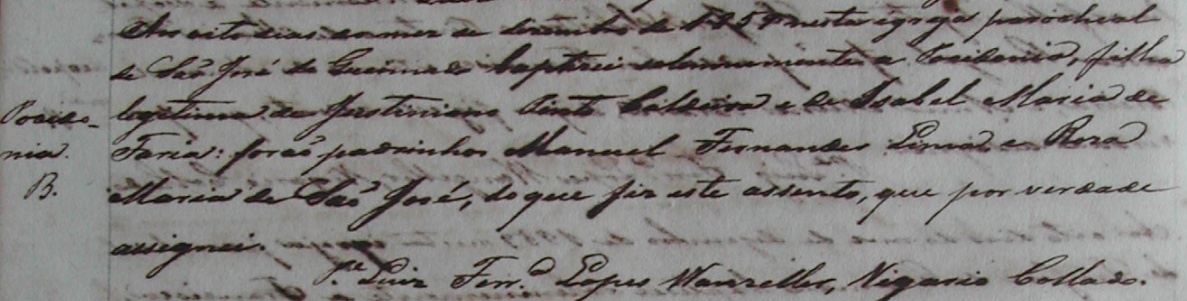 Aos oito dias do mez de dezembro de 185 nesta egreja parochial
de São José do Queimado baptizei solemnemente a Posidonia, filha
legitima de Justiniano Pinto Caldeira e de Isabel Maria de
Faria: forão padrinhos Manuel Fernandes Lima e Rosa
Maria de São José, do que fiz este assento, que por verdade
assignei.
Pe. Luiz Ferr.ª Lopes Wanzeller, Vigario Collado.
Posido-
nia.
B.